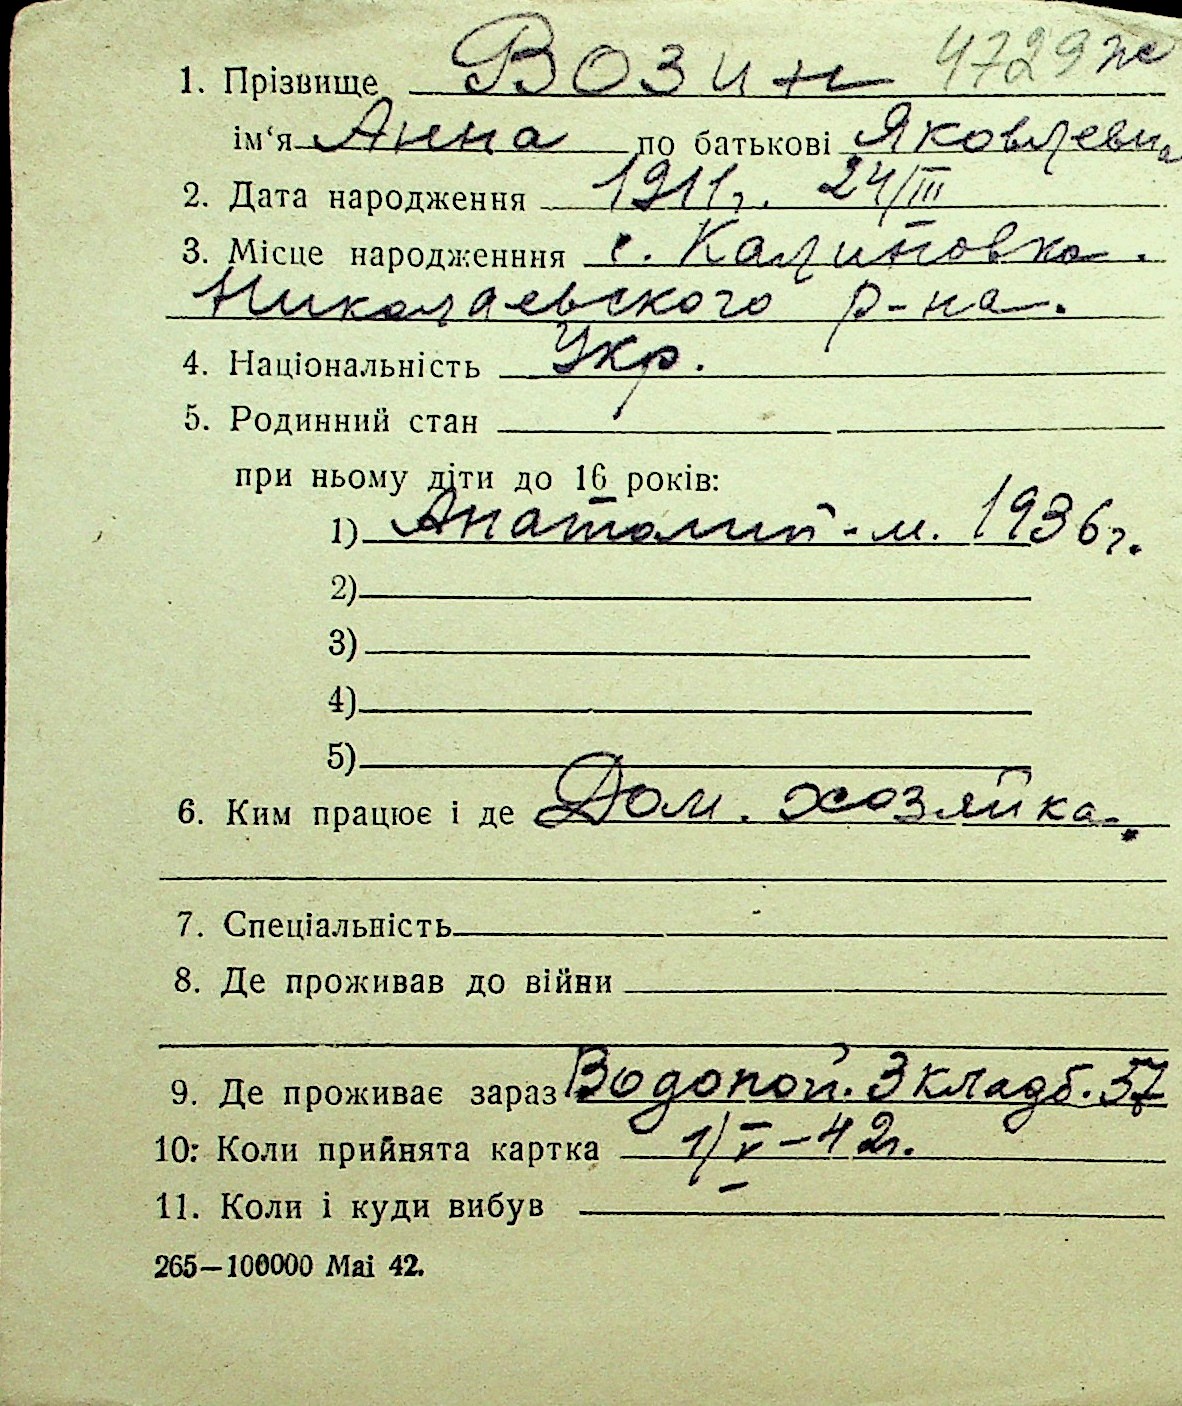 1. Прізвище Возин 4729 ж
ім‘я Анна по батькові Яковлевна
2. Дата народження 1911г. 24/III
3. Місце народженння с. Калиновка.
Николаевского р-на.
4. Національність Укр.
5. Родинний стан
при ньому діти до 16 років:
1) Анатолий - м. 1936г.
2)
3)
4)
5)
6. Ким працює і де Дом. хозяйка.
7. Спеціальність
8. Де проживав до війни
9. Де проживає зараз Водопой. 3 кладб. 57
10: Коли прийнята картка 1/V - 42г.
11. Коли і куди вибув
265—100000 Mai 42.